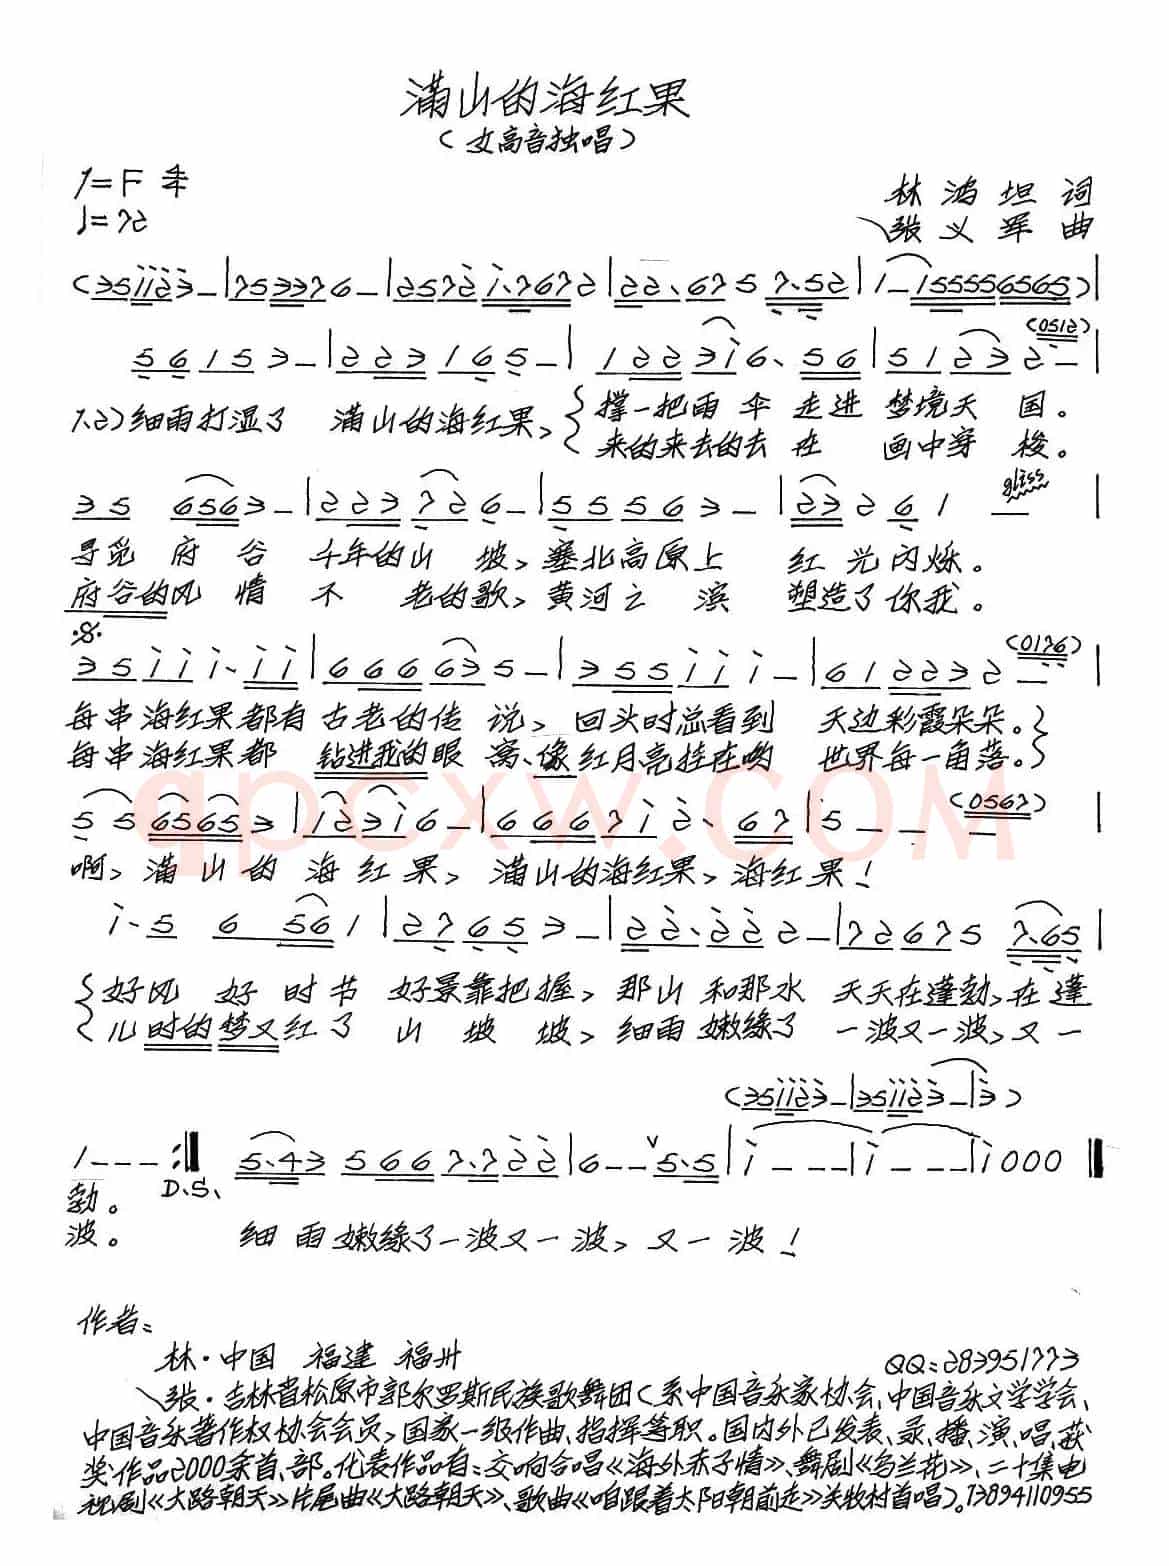 满山的海红果
(女高音独唱)
1=F 4/4
林鸿坦词
♩=72
张义军曲
(3 5 i i 2 3 – | 7 5 3 3 7 6 – | 2 5 7 2 i. 7 6 7 2 | 2 2. 6 7 5 7. 5 2 | 1 – 1 5 5 5 5 6 5 6 5) |
(0512)
5 6 1 5 3 – | 2 2 3 1 6 5 – | 1 2 2 3 i 6. 5 6 | 5 1 2 3 2 – |
1.2)细雨打湿了 满山的海红果, 撑一把雨伞走进梦境天国。
来的来去的去在 画中穿梭。
gliss
3 5 6 5 6 3 – | 2 2 3 7 2 6 – | 5 5 5 6 3 – | 2 3 2 6 1 – |
寻觅府谷千年的山坡, 塞北高原上 红光闪烁。
府谷的风情不老的歌, 黄河之滨 塑造了你我。
(0176)
3 5 i i i. i i | 6 6 6 6 6 3 5 – | 3 5 5 i i i – | 6 1 2 2 3 2 – |
每串海红果都有古老的传说, 回头时总看到 天边彩霞朵朵。
每串海红果都 钻进我的眼窝、像红月亮挂在哟 世界每一角落。
qpcxw.COM
(0567)
5 5 6 5 6 5 3 | i 2 3 i 6 – | 6 6 6 7 i 2. 6 7 | 5 – – – |
啊, 满山的海红果, 满山的海红果, 海红果!
i. 5 6 5 6 1 | 2 7 6 5 3 – | 2 2. 2 2 2 – | 7 2 6 7 5 7. 6 5 |
好风好时节 好景靠把握, 那山和那水 天天在蓬勃, 在蓬
儿时的梦又红了山坡坡, 细雨嫩缘了 一波又一波, 又一
(3 5 i i 2 3 – | 3 5 i i 2 3 – | 3)
1 – – – :‖ 5. 4 3 5 6 6 7. 7 2 2 | 6 – – 5. 5 | i – – – | i – – – | i 0 0 0 ‖
D.S.
勃。
波。 细雨嫩缘了一波又一波, 又一波!
作者:
林·中国 福建 福州 QQ:283951773
张·吉林省松原市郭尔罗斯民族歌舞团(系中国音乐家协会、中国音乐文学学会、
中国音乐著作权协会会员, 国家一级作曲、指挥等职。国内外已发表、录、播、演、唱、获
奖作品2000余首、部。代表作品有:交响合唱《海外赤子情》、舞剧《乌兰花》、二十集电
视剧《大路朝天》片尾曲《大路朝天》、歌曲《咱跟着太阳朝前走》关牧村首唱)。13894110955